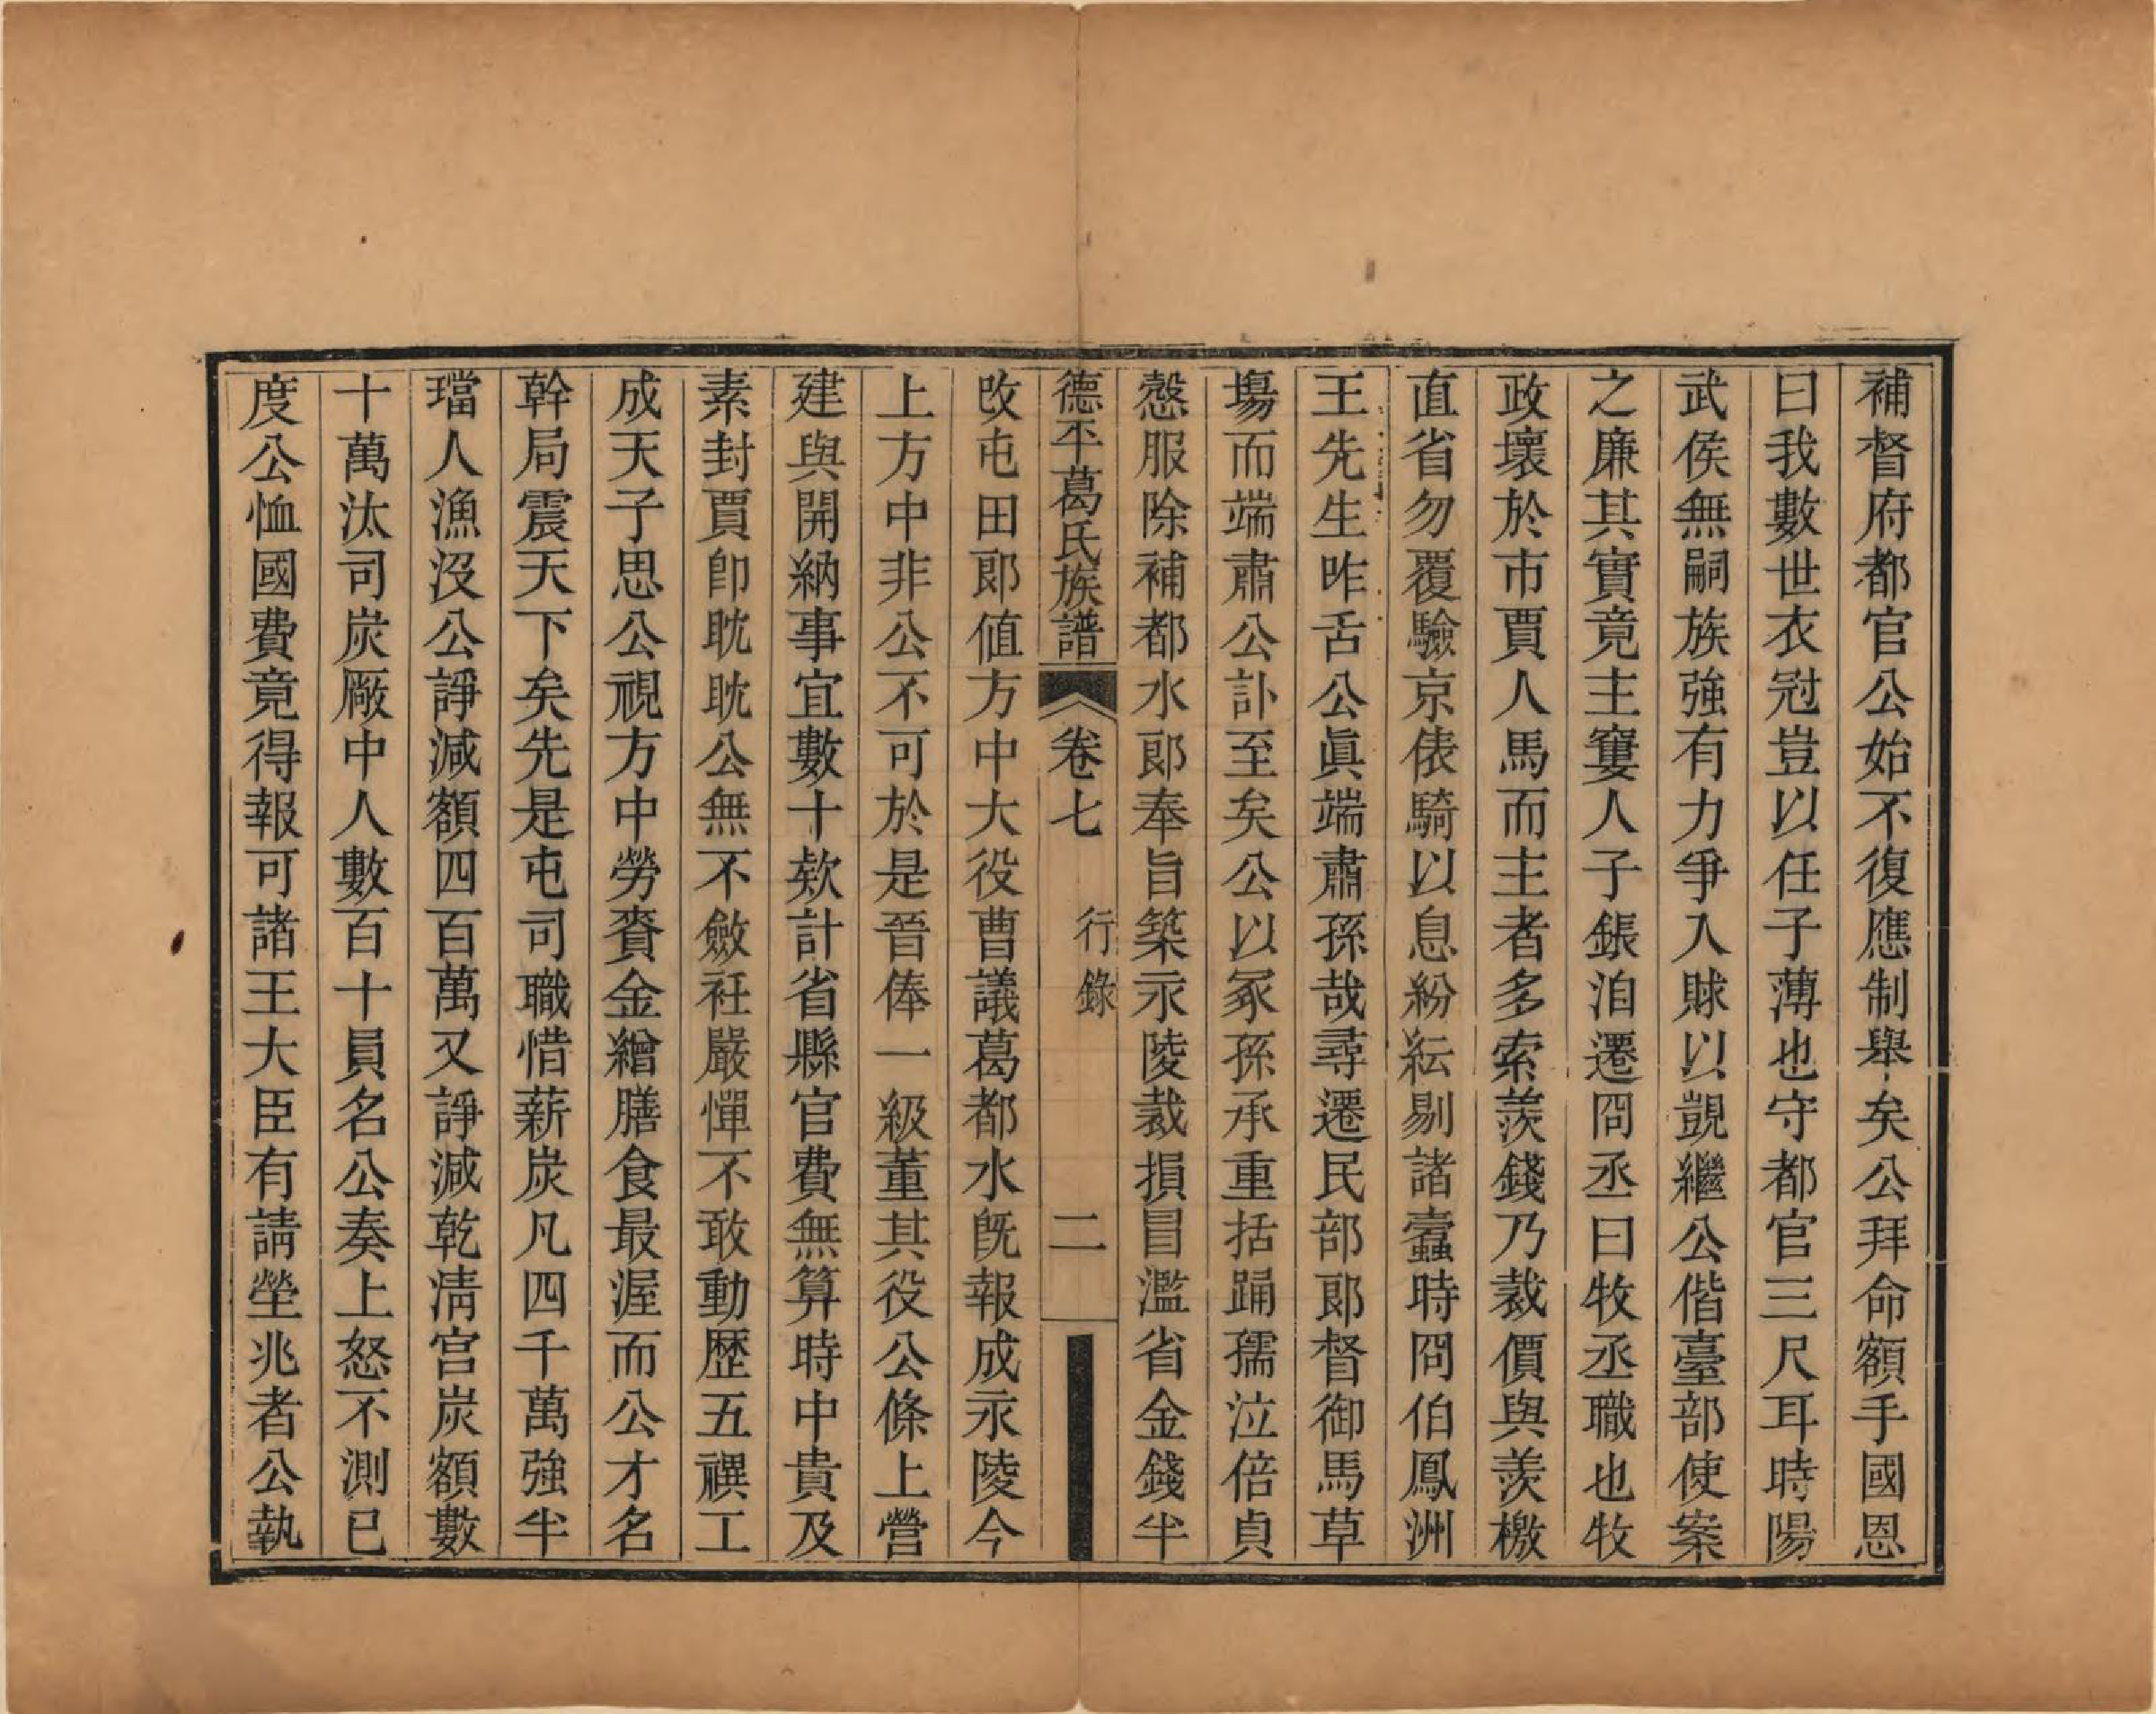 補督府都官公始不復應制舉矣公拜命額手國恩
曰我數世衣冠豈以任子薄也守都官三尺耳時陽
武侯無嗣族強有力爭入賕以覬繼公偕臺部使案
之廉其實竟主窶人子鋹洎遷冏丞曰牧丞職也牧
政壞於市賈人馬而主者多索羨錢乃裁價與羨檄
直省勿覆驗京俵騎以息紛紜剔諸蠹時冏伯鳳洲
王先生咋舌公眞端肅孫哉尋遷民部郎督御馬草
塲而端肅公訃至矣公以冢孫承重括踊孺泣倍貞
慤服除補都水郎奉旨築永陵裁損冒濫省金錢半
德平葛氏族譜 卷七 行錄 二
改屯田郎値方中大役曹議葛都水旣報成永陵今
上方中非公不可於是晉俸一級董其役公條上營
建與開納事宜數十欵計省縣官費無算時中貴及
素封賈卽眈眈公無不斂衽嚴憚不敢動歷五禩工
成天子思公視方中勞賚金繒膳食最渥而公才名
幹局震天下矣先是屯司職惜薪炭凡四千萬強半
璫人漁沒公諍減額四百萬又諍減乾淸宮炭額數
十萬汰司炭廠中人數百十員名公奏上怒不測已
度公恤國費竟得報可諸王大臣有請塋兆者公執